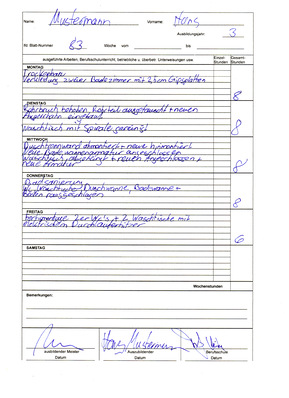 Name Mustermann Vorname Hans
Ausbildungsjahr: 3
Nr. Blatt-Nummer 83 Woche vom bis
ausgeführte Arbeiten, Berufsschulunterricht, betriebliche u. überbetr. Unterweisungen usw. Einzel-Stunden Gesamt-Stunden
MONTAG
Trockenbau
Verkleidung zweier Badezimmer mit 2,5cm Gipsplatten
8
DIENSTAG
Rohrbruch behoben, Rohrteil ausgetauscht + neuen
eingebaut
Waschtisch mit Spirale gereinigt
8
MITTWOCH
Duschtrennwand demontiert + neue montiert
neue Badewannenarmatur angeschlossen
Waschtisch + neuen
neue Armatur
8
DONNERSTAG
Badsanierung
Wc, Waschtisch, Duschwanne, Badewanne +
Boden rausgeschlagen
8
FREITAG
Fertigmontage 2er Wc's + 2 Waschtische mit
elektrischem Durchlauferhitzer
6
SAMSTAG
Wochenstunden
Bemerkungen:
Hans Mustermann
ausbildender Meister Auszubildender Berufsschule
Datum Datum Datum